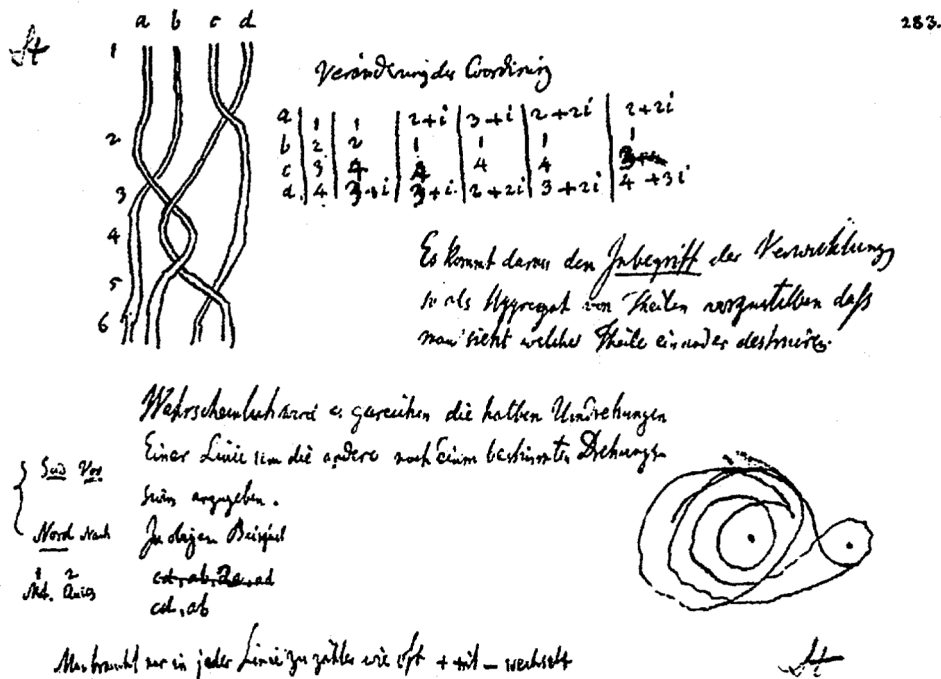 283.
a b c d
1
2
3
4
5
6
Veränderung der Coordinirung
a | 1 | 1 | 2+i | 3+i | 2+2i | 2+2i
b | 2 | 2 | 1 | 1 | 1 | 1
c | 3 | 4 | 4 | 4 | 4 | 3
d | 4 | 3+i | 3+i | 2+2i | 3+2i | 4+3i
Es kommt darauf den Inbegriff der Verwicklung
so als Aggregat von Theilen vorzustellen daß
man sieht welche Theile einander destruiren.
Wahrscheinlich wird es gereichen die halben Umdrehungen
Einer Linie um die andere nach einem bestimmten Drehungs-
sinn anzugeben.
Süd Vor
Nord Nach
In obigen Beispiel
1 2
cd, ab, 2 ad
cd, ab
Man braucht nur in jeder Linie zu zählen wie oft + mit − wechselt